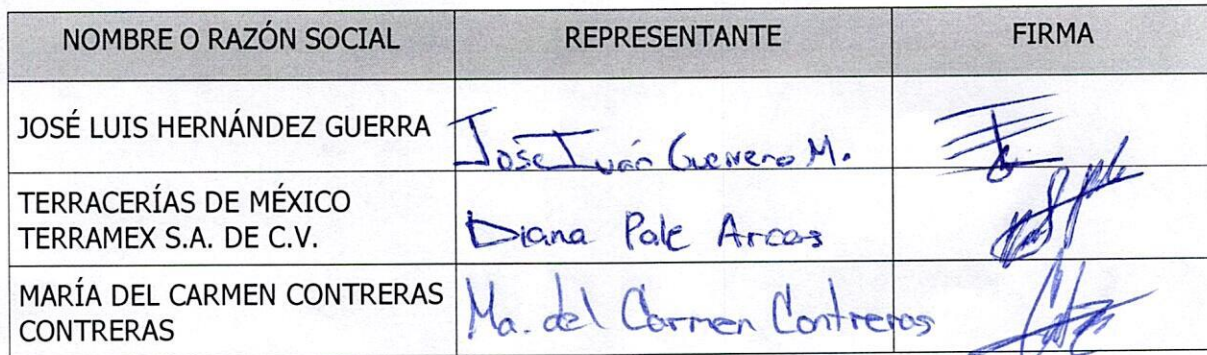 NOMBRE O RAZÓN SOCIAL REPRESENTANTE FIRMA
JOSÉ LUIS HERNÁNDEZ GUERRA José Iván Guerrero M.
TERRACERÍAS DE MÉXICO
TERRAMEX S.A. DE C.V. Diana Pale Arcos
MARÍA DEL CARMEN CONTRERAS
CONTRERAS Ma. del Carmen Contreras